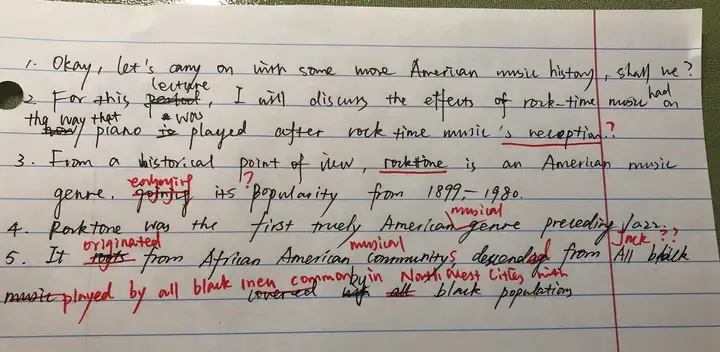 1. Okay, let's carry on with some more American music history, shall we?
lecture
2. For this period, I will discuss the effects of rock-time music had on
the way that was
how / piano is played after rock time music's reception?
3. From a historical point of view, rocktone is an American music
enjoying ?
genre. going its popularity from 1899.-1980.
musical
4. Rocktone was the first truely American genre preceding Jazz.
originated musical Jack??
5. It roots from African American communitys descended from All black
music played by all black men commonby in North West Cities with
covered all black populations